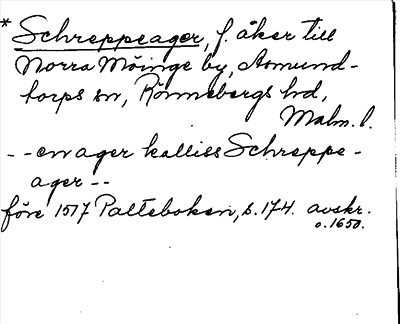 * Schreppeager, f. åker till
Norra Möinge by, Asmund-
torps sn, Rönnebergs hd,
Malm. l.
- - en ager kalliss Schreppe-
ager - -
före 1517 Palteboken, s. 174. avskr.
o. 1650.